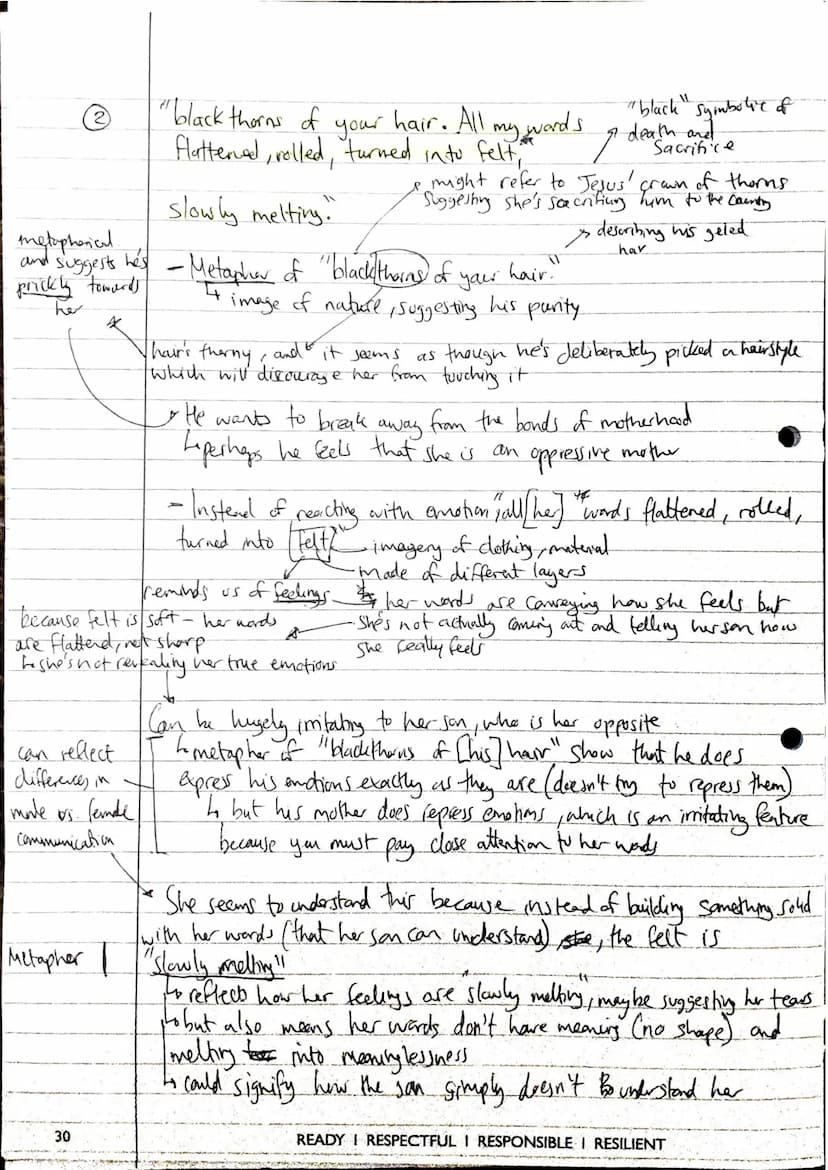 ②
"blackthorns of your hair. All my words
flattened, rolled, turned into felt,
slowly melting."
"black" symbolic of
death and
sacrifice
might refer to Jesus' crown of thorns
suggesting she's sacrificing him to the country
describing his geled
hair
metaphorical
and suggests he's
prickly towards
her
- Metaphor of "blackthorns of your hair."
↳ image of nature, suggesting his purity
hair's thorny, and it seems as though he's deliberately picked a hairstyle
which will discourage her from touching it
He wants to break away from the bonds of motherhood
↳ perhaps he feels that she is an oppressive mother
- Instead of reacting with emotion, "all [her] words flattened, rolled,
turned into felt" imagery of clothing, material
made of different layers
reminds us of feelings
her words are conveying how she feels but
she's not actually coming out and telling her son how
she really feels
because felt is soft - her words
are flattend, not sharp
↳ she's not revealing her true emotions
Can be hugely irritating to her son, who is her opposite
↳ metaphor of "blackthorns of [his] hair" show that he does
express his emotions exactly as they are (doesn't try to repress them)
↳ but his mother does repress emotions, which is an irritating feature
because you must pay close attention to her words
can reflect
differences in
male vs. female
communication
She seems to understand this because instead of building something solid
with her words (that her son can understand), the felt is
"slowly melting"
Metapher
↳ reflects how her feelings are "slowly melting", maybe suggesting her tears
↳ but also means her words don't have meaning (no shape) and
melting into meaninglessness
↳ could signify how the son simply doesn't understand her
30
READY | RESPECTFUL | RESPONSIBLE | RESILIENT